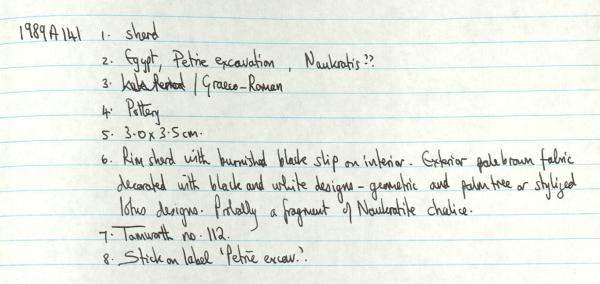 1989A141 1. sherd
2. Egypt, Petrie excavation, Naukratis??
3. Late Period / Graeco-Roman
4. Pottery
5. 3.0 x 3.5 cm.
6. Rim sherd with burnished black slip on interior. Exterior pale brown fabric
decorated with black and white designs - geometric and palm tree or stylized
lotus designs. Probally a fragment of Naukratite chalice.
7. Tamworth no. 112.
8. Stick on label 'Petrie excav.'.